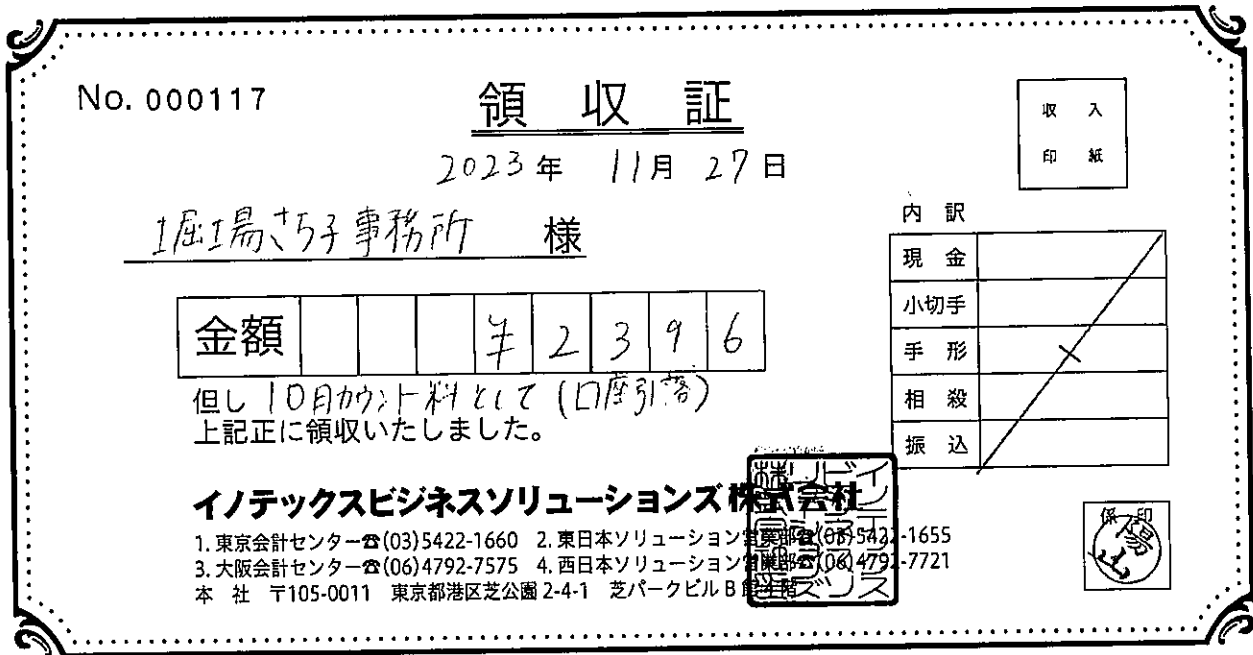 No. 000117
領収証
収入
印紙
2023年 11月 27日
堀場さち子事務所 様
内訳
現金
小切手
手形
相殺
振込
金額 ¥2396
但し 10月カウント料として (口座引落)
上記正に領収いたしました。
イノテックスビジネスソリューションズ株式会社
1. 東京会計センター☎(03)5422-1660 2. 東日本ソリューション営業部☎(03)5422-1655
3. 大阪会計センター☎(06)4792-7575 4. 西日本ソリューション営業部☎(06)4792-7721
本社 〒105-0011 東京都港区芝公園2-4-1 芝パークビルB館
係印